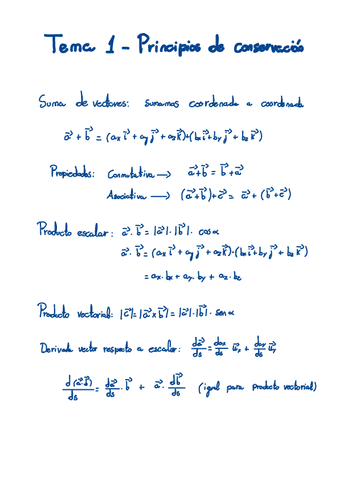 Tema 1 - Principios de conservació
Suma de vectores: sumamos coordenada a coordenada
a⃗ + b⃗ = (ax i⃗ + ay j⃗ + az k⃗)+(bx i⃗ + by j⃗ + bz k⃗)
Propiedades: Conmutativa → a⃗+b⃗ = b⃗+a⃗
Asociativa → (a⃗+b⃗)+c⃗ = a⃗ + (b⃗+c⃗)
Producto escalar: a⃗ · b⃗ = |a⃗| · |b⃗| · cos α
a⃗ · b⃗ = (ax i⃗ + ay j⃗ + az k⃗)·(bx i⃗ + by j⃗ + bz k⃗)
= ax·bx + ay·by + az·bz
Producto vectorial: |c⃗| = |a⃗ x b⃗| = |a⃗| · |b⃗| · sen α
Derivada vector respecto a escalar: da⃗/ds = dax/ds u⃗x + day/ds u⃗y
d(a⃗·b⃗)/ds = da⃗/ds · b⃗ + a⃗ · db⃗/ds (igual para producto vectorial)